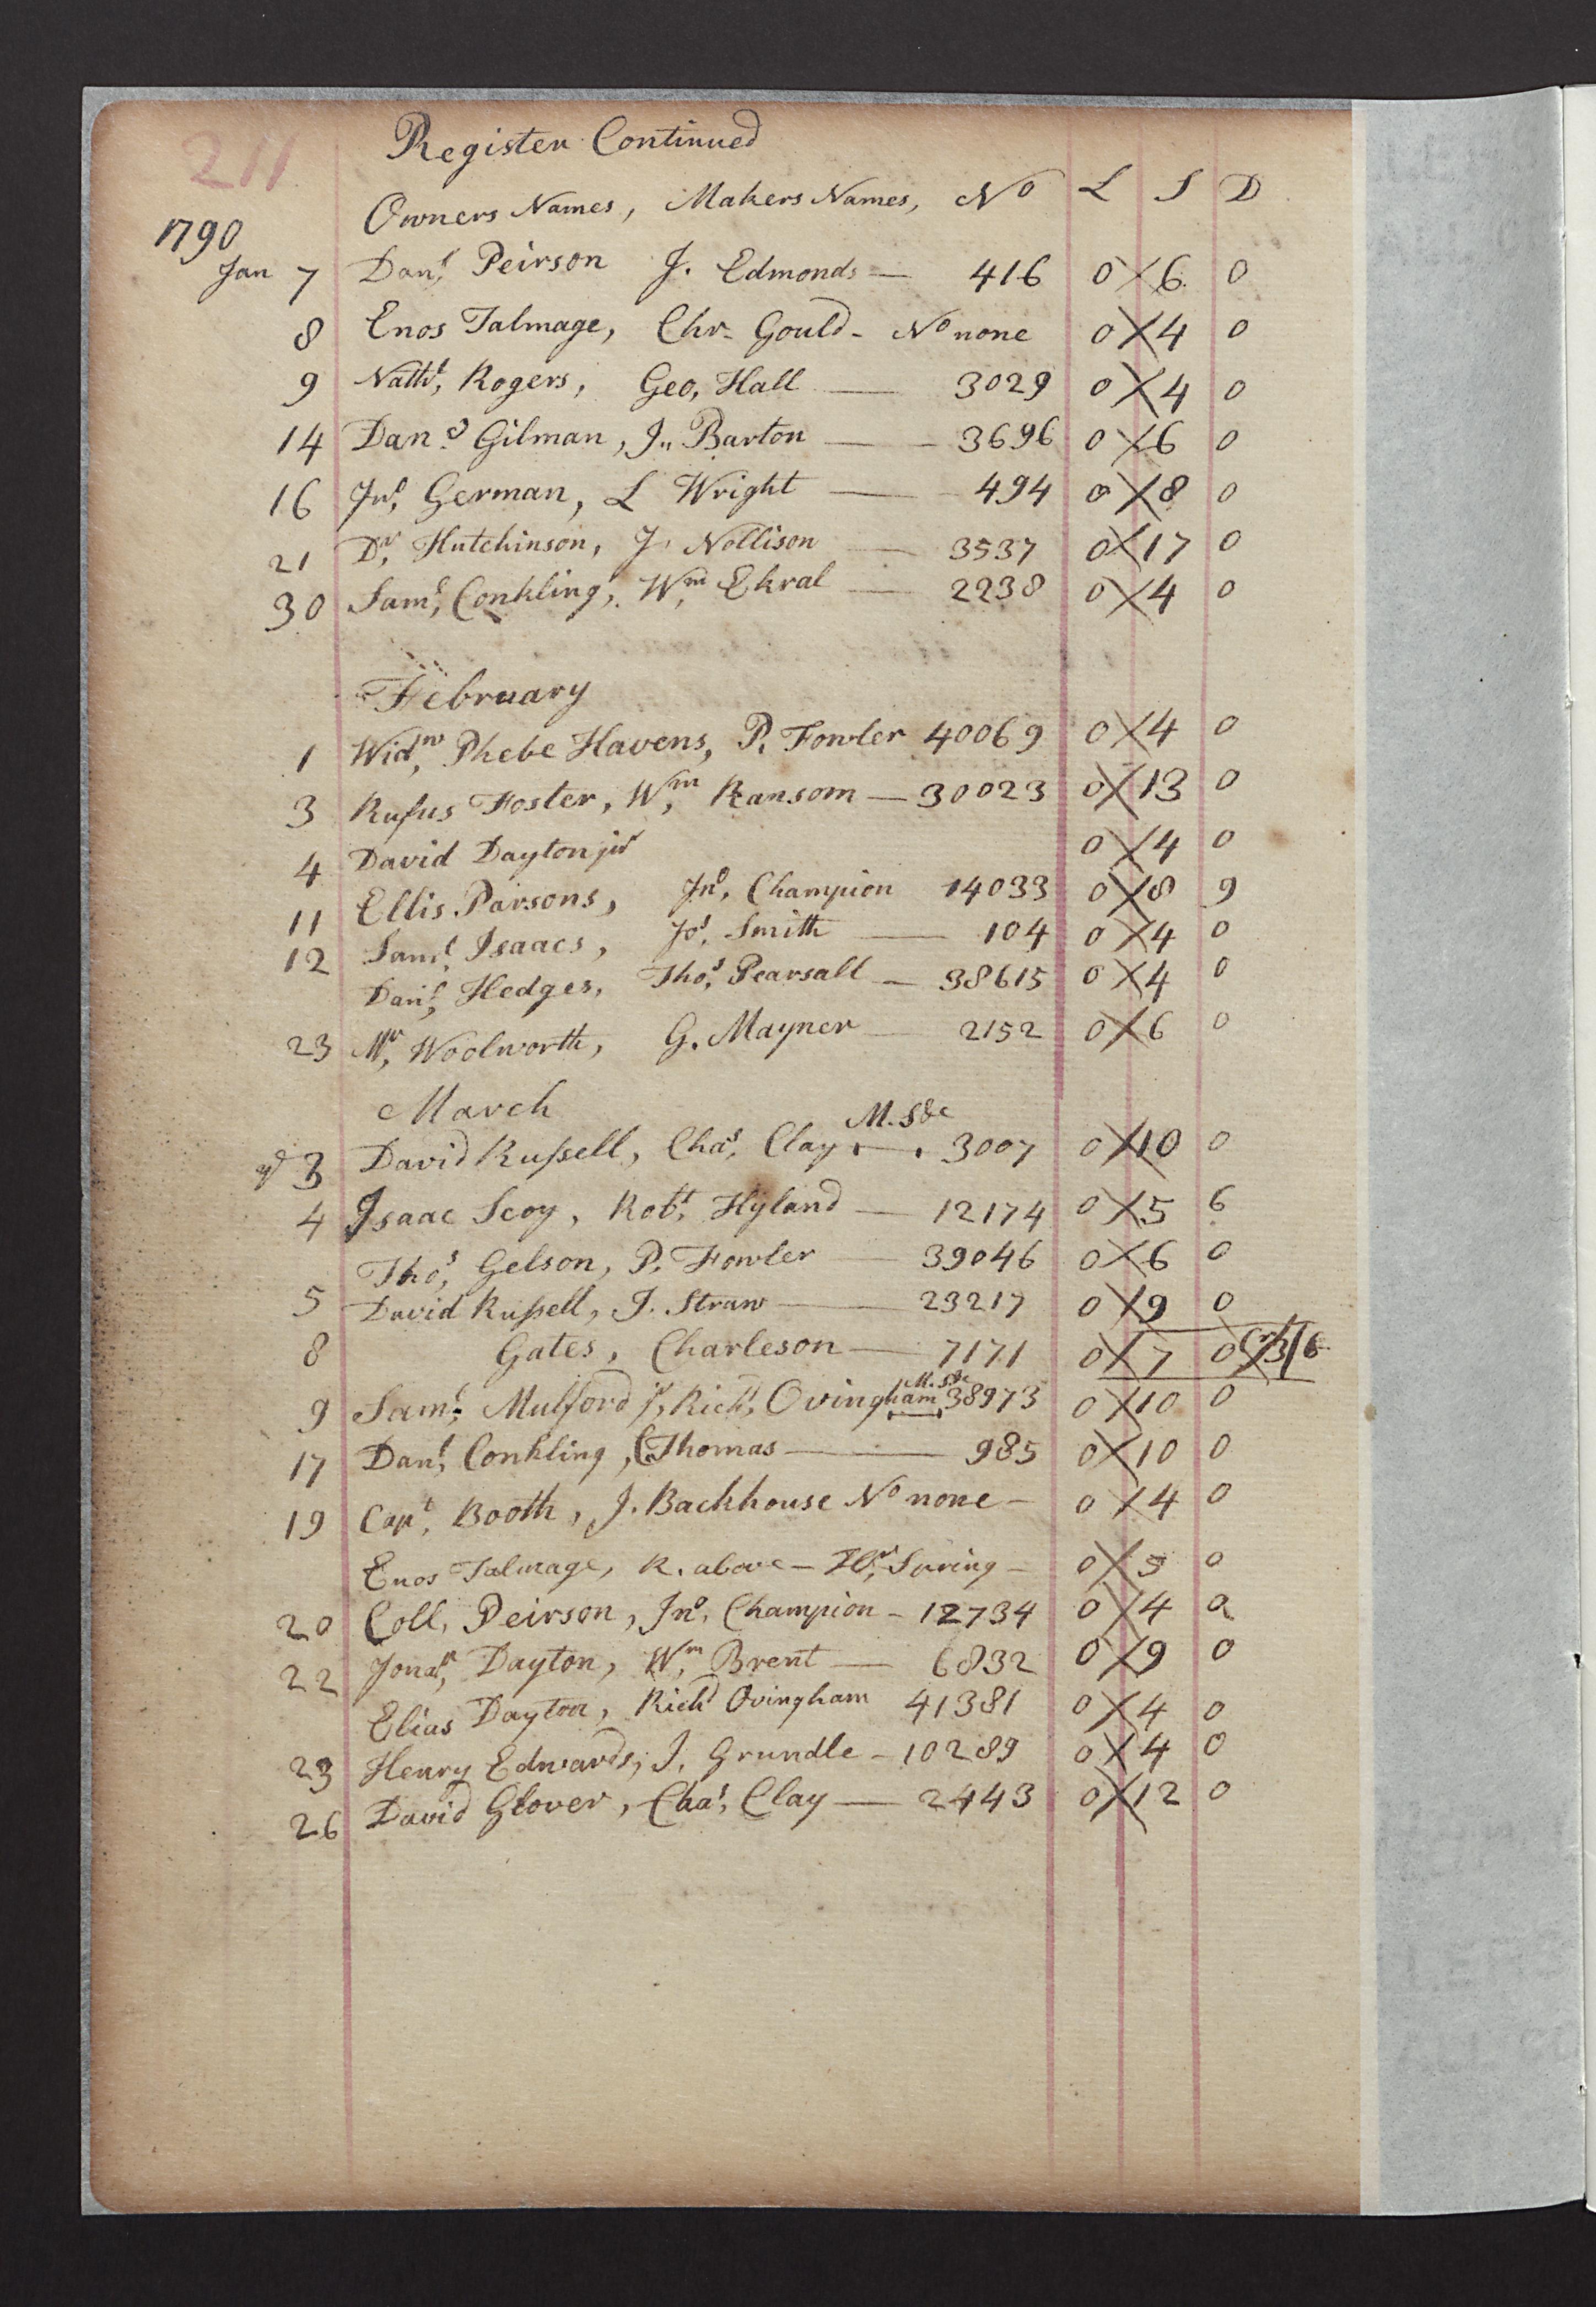 211
Register Continued
Owners Names, Makers Names, No L S D
1790
Jan 7 Danl, Peirson J. Edmonds — 416 0 6 0
8 Enos Talmage, Chr- Gould - No none 0 4 0
9 Nathl, Rogers, Geo, Hall — 3029 0 4 0
14 Danl Gilman, J,, Barton — 3696 0 6 0
16 Jno, German, L Wright — 494 0 8 0
21 Dr, Hutchinson, J. Nollison — 3537 0 17 0
30 Saml, Conkling, Wm, Ekral — 2238 0 4 0
February
1 Widw, Phebe Havens, P. Fowler 40069 0 4 0
3 Rufus Foster, Wm, Ransom — 30023 0 13 0
4 David Dayton jur 0 4 0
11 Ellis Parsons, Jno, Champion 14033 0 8 9
12 Saml, Isaacs, Jos, Smith — 104 0 4 0
Danl, Hedges, Thos, Pearsall — 38615 0 4 0
23 Mr, Woolworth, G. Mayner — 2152 0 6 0
March
M. S&c
3 David Russell, Chas, Clay — 3007 0 10 0
4 Isaac Scoy, Robt, Hyland — 12174 0 5 6
Thos, Gelson, P. Fowler — 39046 0 6 0
5 David Russell, J. Straw — 23217 0 9 0
8 Gates, Charleson — 7171 0 7 0 3/6
M. S&c
9 Saml, Mulford jr, Richd, Ovingham 38973 0 10 0
17 Danl, Conkling, C. Thomas — 985 0 10 0
19 Capt, Booth, J. Backhouse No none - 0 4 0
Enos Talmage, R. above - Spring - 0 5 0
20 Coll, Peirson, Jno, Champion - 12734 0 4 0
22 Jonan, Dayton, Wm, Brent — 6832 0 9 0
Elias Dayton, Richd Ovingham 41381 0 4 0
23 Henry Edwards, J. Grundle - 10289 0 4 0
26 David Glover, Chas, Clay — 2443 0 12 0